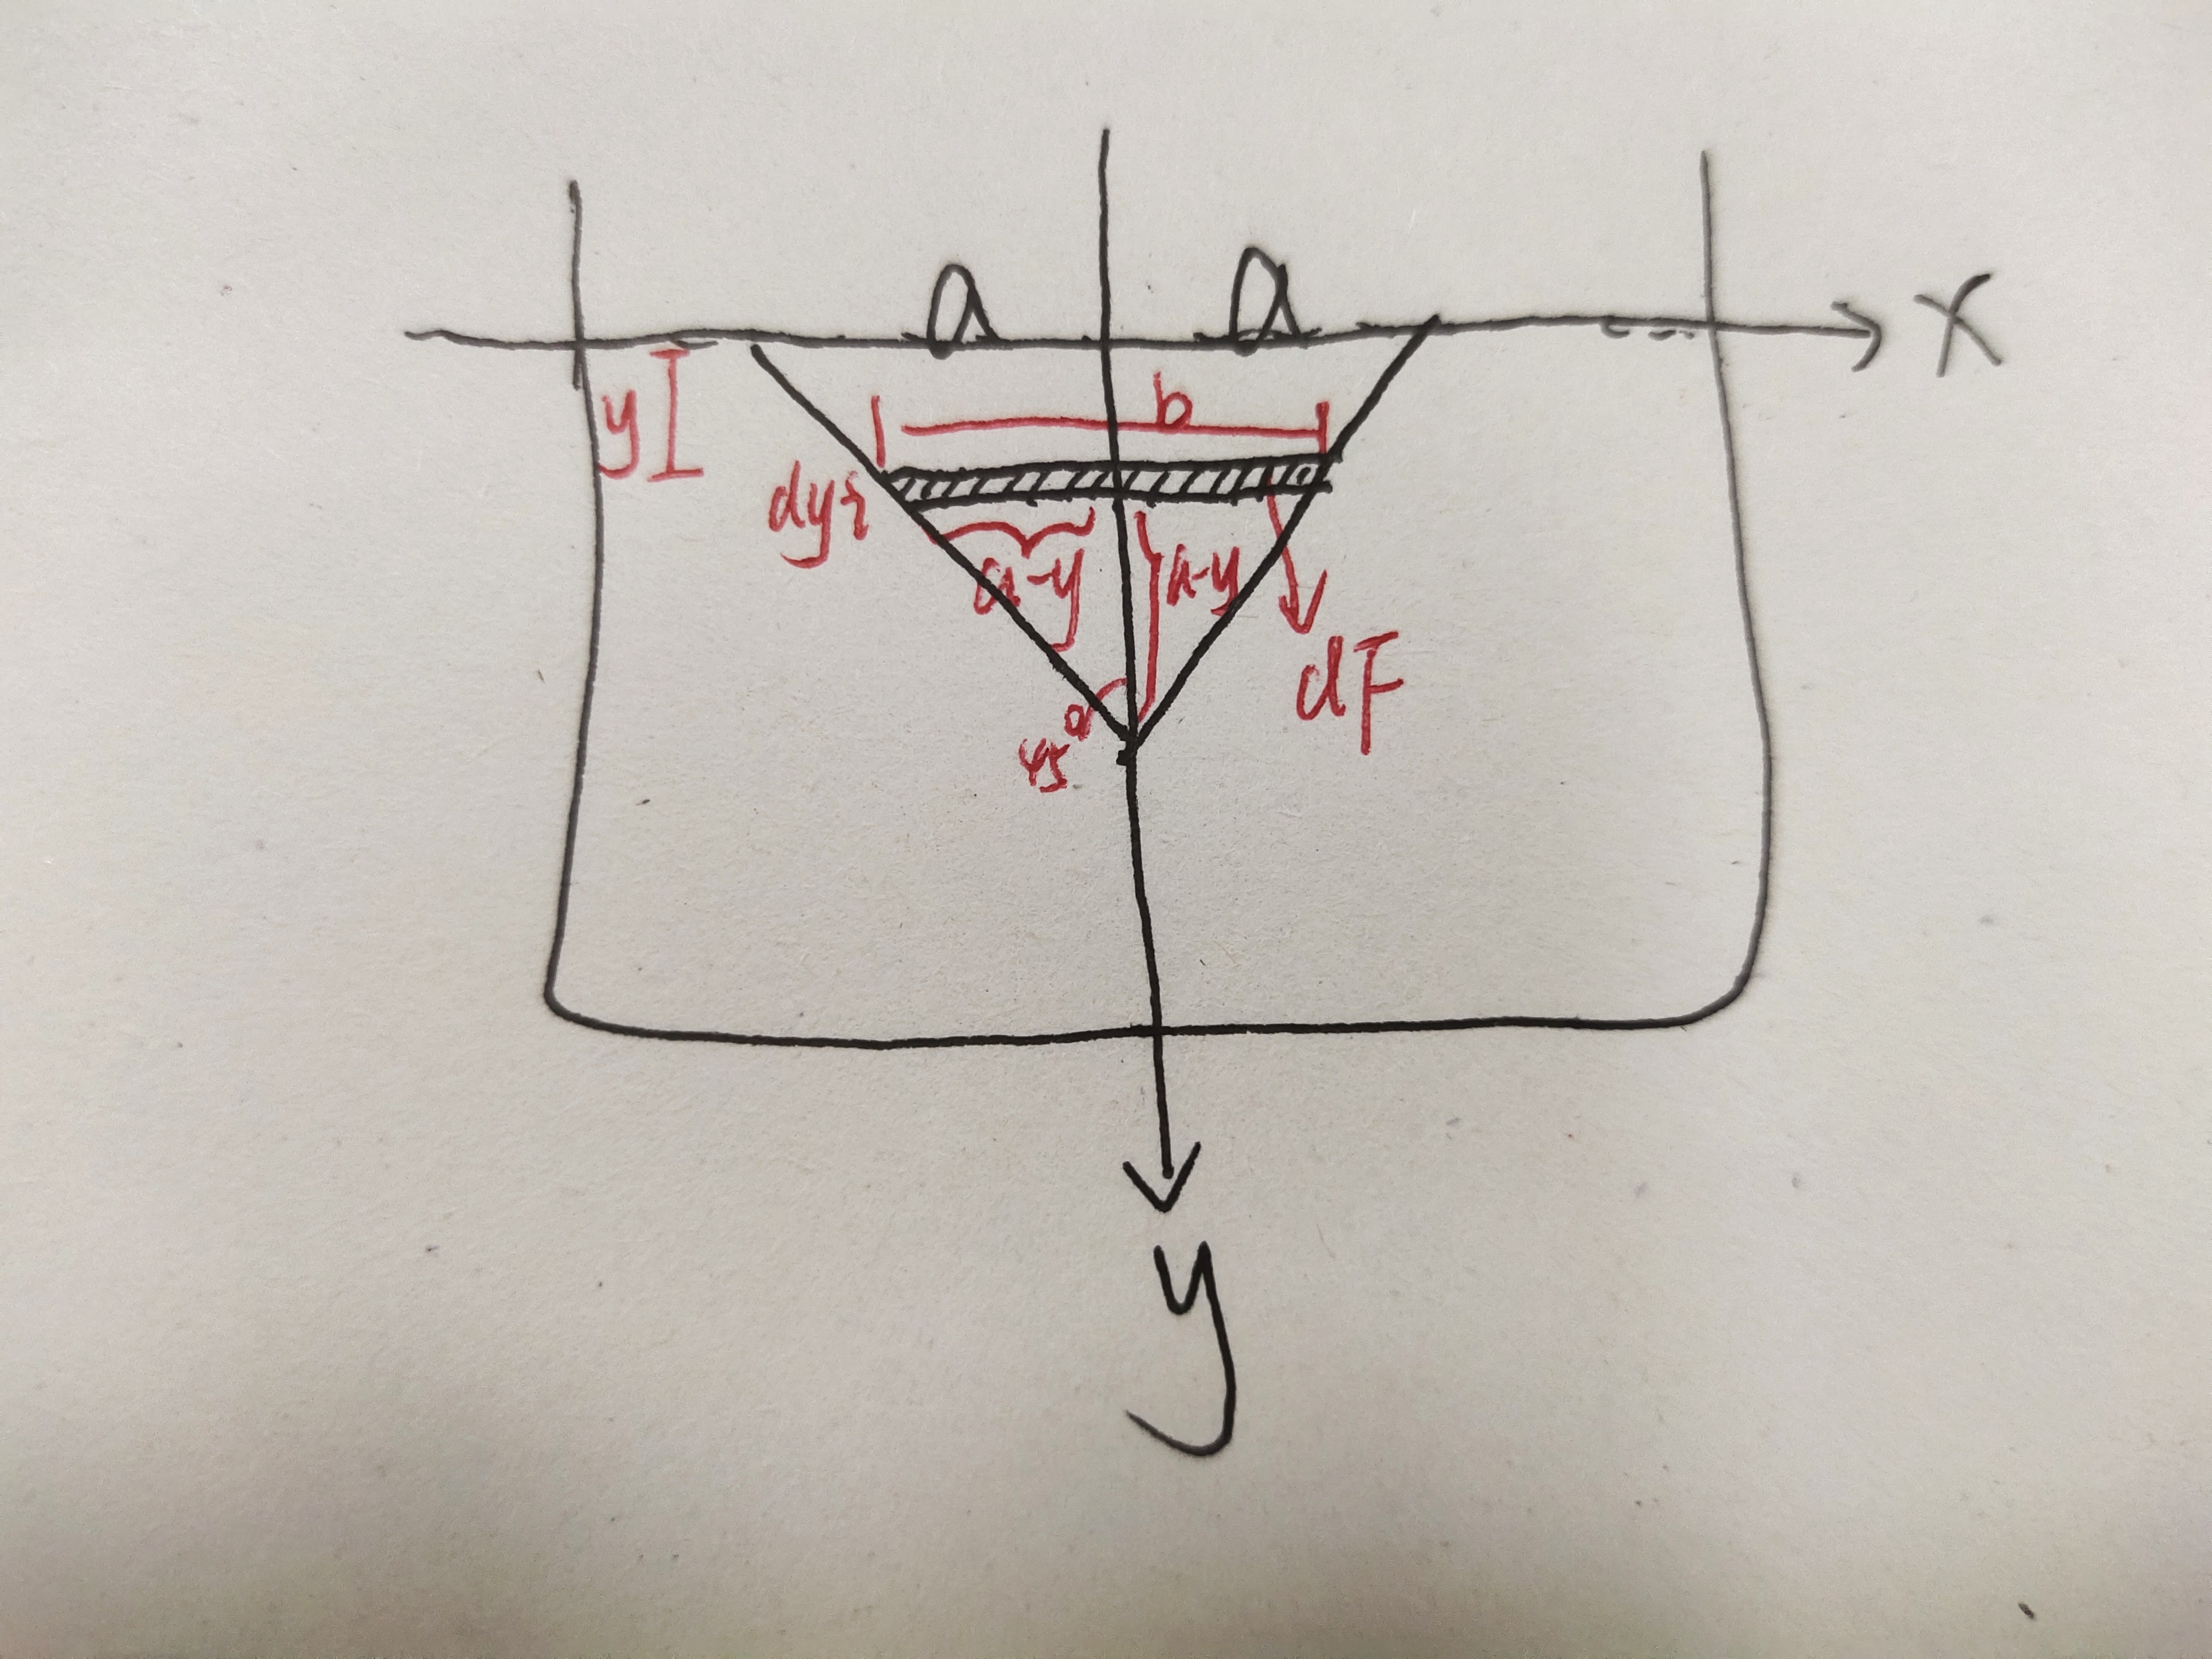 a a
x
y b
dy
a-y a-y
dF
45°
y